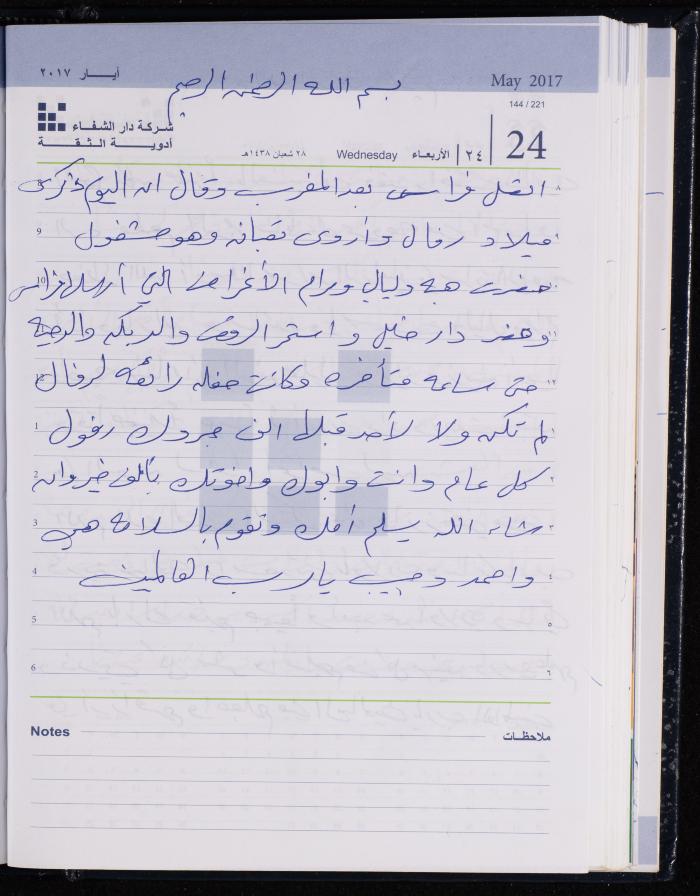 أيـــار ٢٠١٧
May 2017
بسم الله الرحمن الرحيم
144 / 221
شركة دار الشفـاء
أدويـــة الـثـقـــة
٢٨ شعبان ١٤٣٨هـ
Wednesday
الأربعاء
٢٤
24
اتصل فراس بعد المغرب وقال ان اليوم ذكرى
ميلاد رفال وأروى تعبانه وهو مشغول
حضرت هبه وليالي ورام الأغراض التي أرسلها فراس
وحضر دار خليل واستمر الرقص والدبكه
حتى ساعه متأخره وكانت حفله رائعه لرفال
لم تكن ولا لأحد قبلك الف مبروك رفول
كل عام وانت وابوك واخوتك بألف خير وان
شاء الله يسلم أمك وتقوم بالسلامة هي
واحمد وحبيب يا رب العالمين
Notes
ملاحظـات